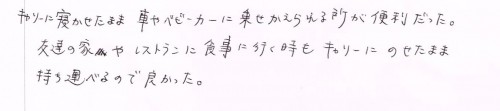 キャリーに寝かせたまま 車やベビーカーに乗せかえられる所が便利だった。
友達の家や レストランに食事に行く時も キャリーに のせたまま
持ち運べるので良かった。